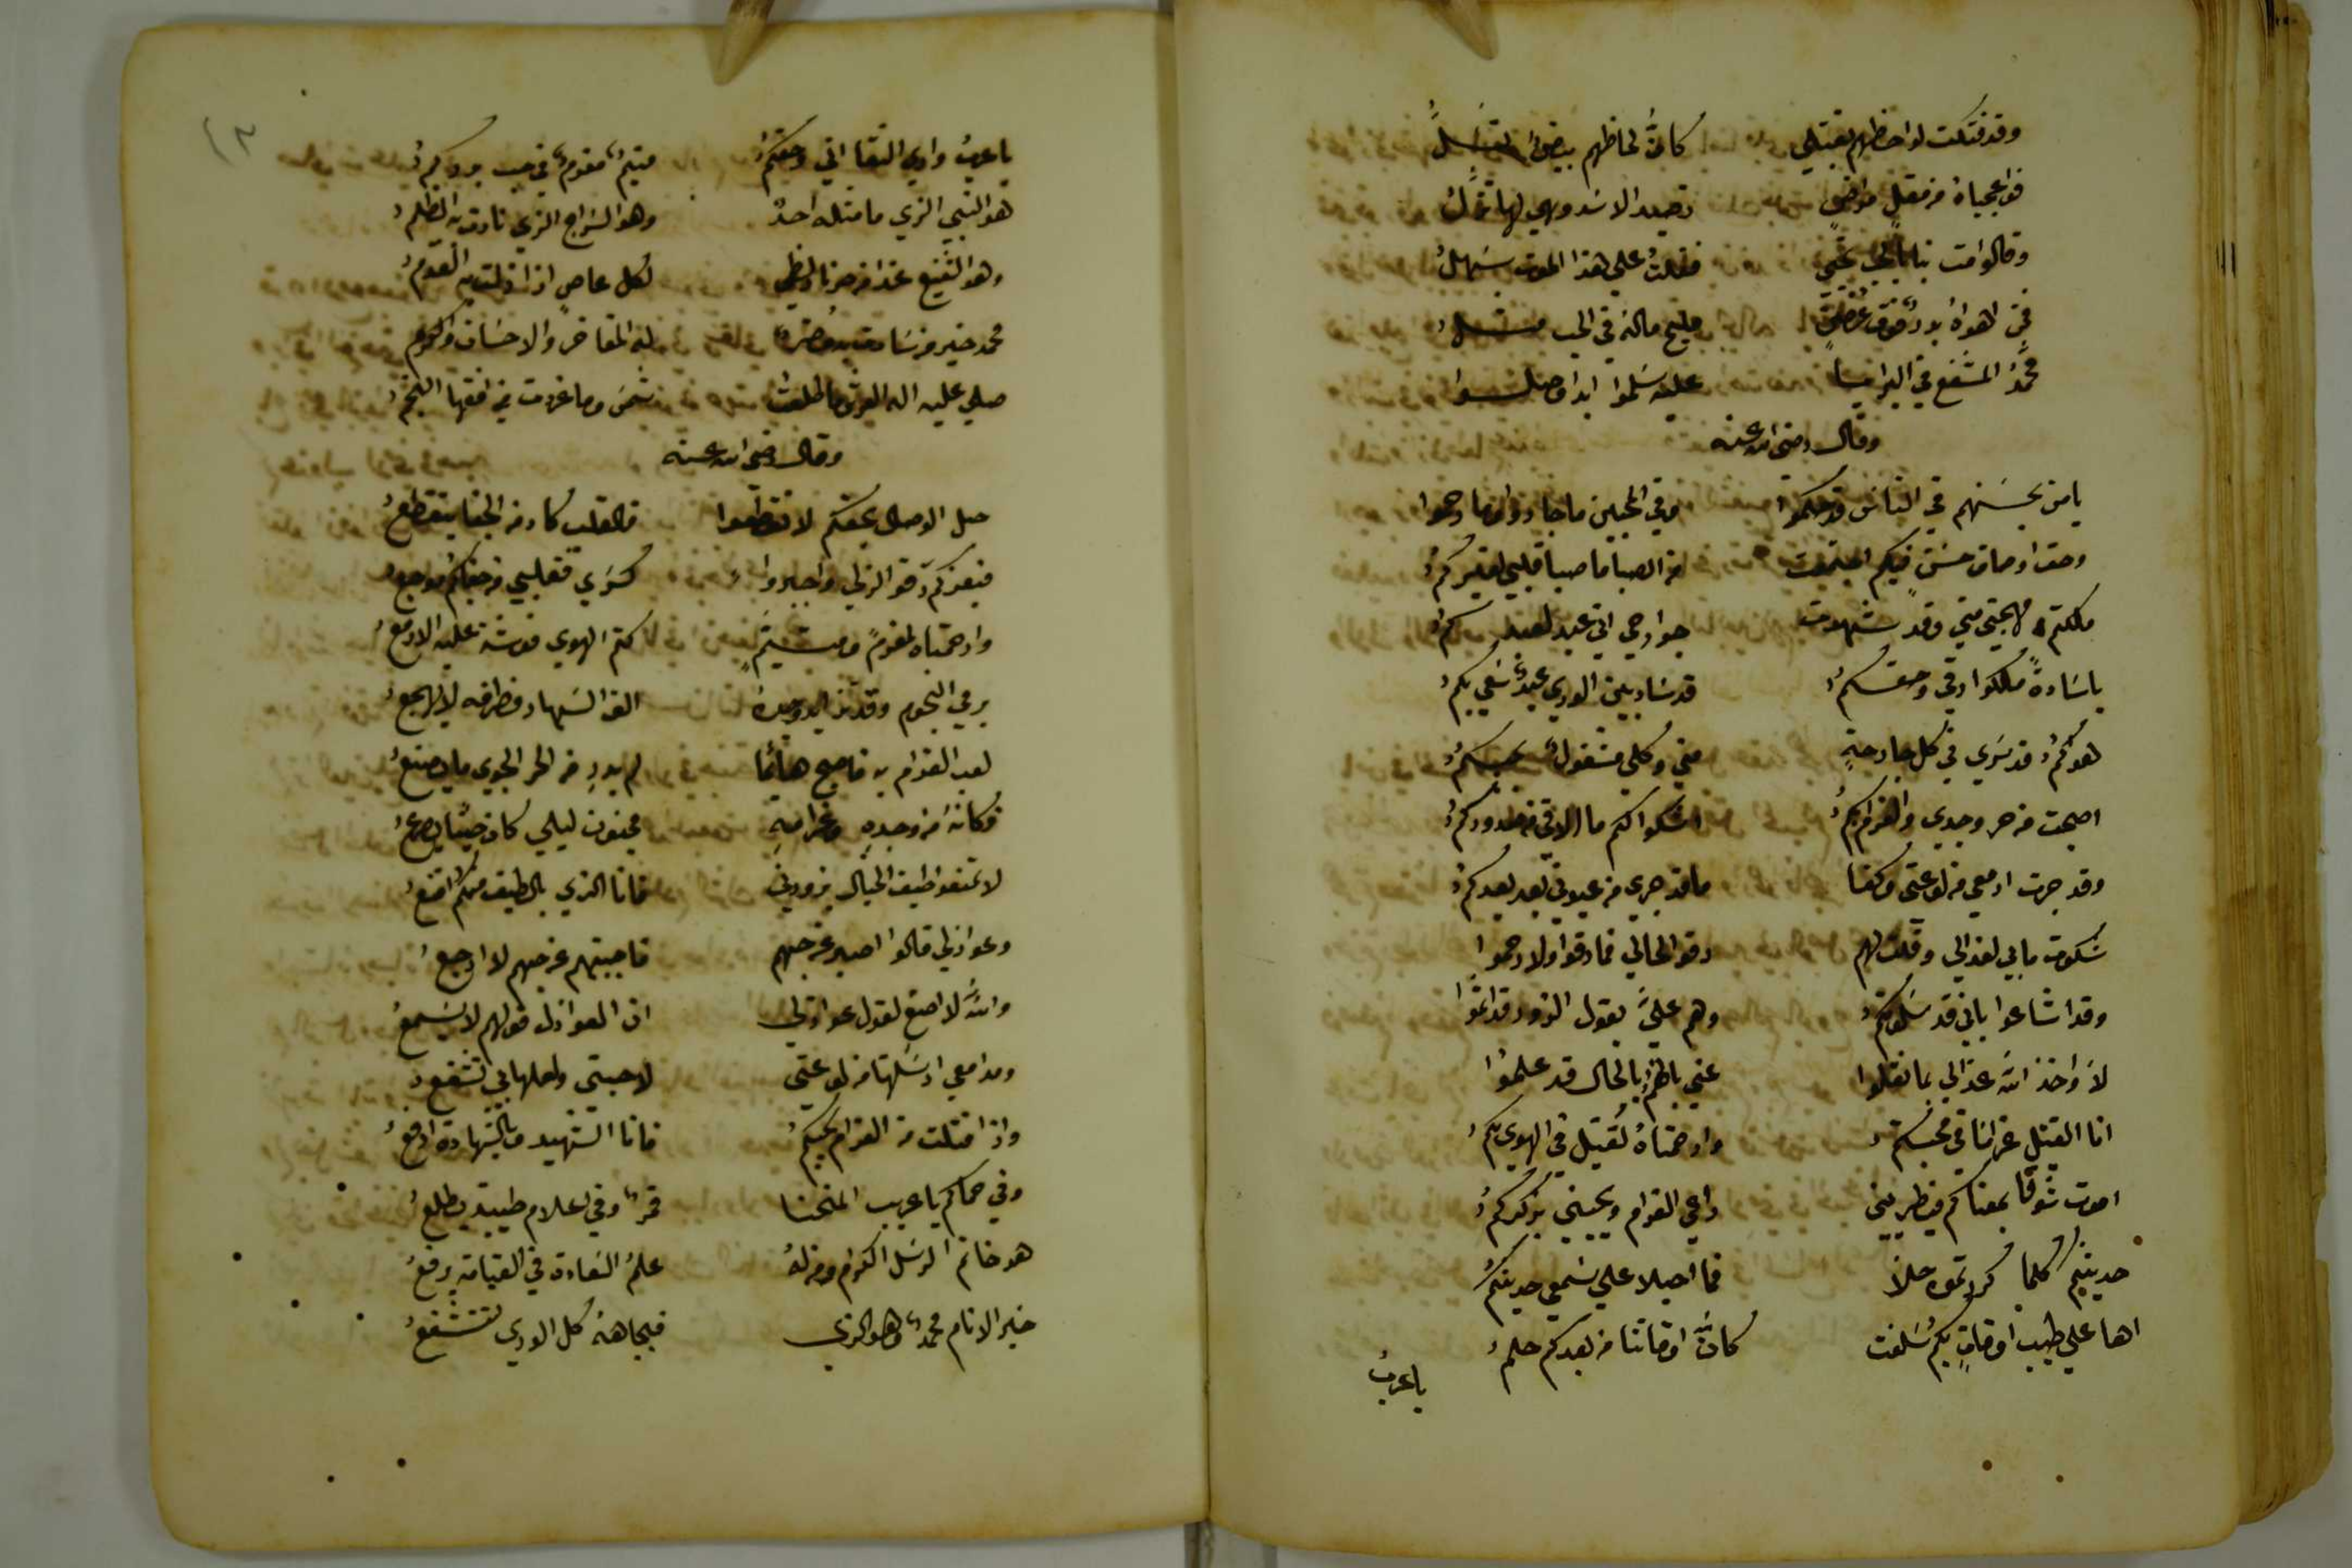 وقد فتكت لواحظهم بقتلي كان لحاظهم بيض تسل
فواعجباه من مقل مراض تصيد الاسد وهي لها تذل
وقالوا مت بنا فقلت على هذا الموت سهل
فمن اهواه بدر فوق غصن مليح ماله في الحب مثل
محمد المشفع في البرايا عليه سلموا ابدا وصلوا
وقال رضي الله عنه
يا من بحسنهم في الناس قد حكموا وفي المحبين ما جاروا وما رحموا
وحق اوصاف حسن فيكم اجتمعت من الصبا ما صبا قلبي لغيركم
ملكتم مهجتي مني وقد شهدت جوارحي اني عبد لعبدكم
يا سادة ملكوا رقي وحقكم قد ساد بين الوري عبد سمي بكم
هواكم قد سري في كل جارحة مني وكلي مشغول بحبكم
اصبحت من حر وجدي والغرام بكم اشكوا لكم ما الاقي من صدودكم
وقد جرت ادمعي من لوعتي وكفا ما قد جري من عيوني بعد بعدكم
شكوت ما بي لعذالي وقلت لهم رقوا لحالي فما رقوا ولا رحموا
وقد اشاعوا باني قد سلوتكم وهم علي بقول الزور قد اثموا
لا واخذ الله عذالي بما نقلوا عني بالحال قد علموا
انا القتيل غراما في محبتكم وارحمتاه لقتيل في الهوي بكم
اموت شوقا بمعناكم فيطربني داعي الغرام ويحييني بذكركم
حديثكم كلما كررتموه حلا فما احيلا علي سمعي حديثكم
اها علي طيب اوقات بكم سلفت كان اوقاتنا من بعدكم حلم
يا عرب
١٣
يا عرب وادي النقا اني وحقكم متيم مغرم في حب بدركم
هو النبي الذي ما مثله احد وهو السراج الذي نارت به الظلم
وهو الشفيع غدا من حر نار لظي لكل عاص اذا زلت به القدم
محمد خير من سادت به مضر له المفاخر والاحسان والكرم
صلي عليه اله العرش ما طلعت شمس وما غربت في افقها النجم
وقال رضي الله عنه
حبل الوصال بحقكم لا تقطعوا فالقلب كاد من الجفا يتقطع
فبعزكم رقوا لذلي واجبروا كسري فقلبي من جفاكم موجع
وارحمتاه لمغرم ومتيم كتم الهوي فوشت عليه الادمع
يرعي النجوم وقد تزايد وجده الف السهاد فطرفه لا يهجع
لعب الغرام به فاصبح هائما لم يدر من الحر الجوي ما يصنع
فكانه من وجده وغرامه مجنون ليلي كان حينا يصرع
لا تمنعوا طيف الخيال يزورني فانا الذي بالطيف منكم اقنع
وعواذلي قالوا اصبر عن حبهم فاجبتهم عن حبهم لا ارجع
والله لا اصغ لقول عواذلي ان العواذل قولهم لا يسمع
ومدامعي ارسلتها من لوعتي لاحبتي ولعلها بي تشفع
واذا قتلت من الغرام بحبكم فانا الشهيد وبالشهادة ارفع
وفي حماكم يا عريب المنحنا قمر وفي اعلام طيبة يطلع
هو خاتم الرسل الكرام ومن له علم السعادة في القيامة يرفع
خير الانام محمد وهو الذي فبجاهه كل الوري تتشفع